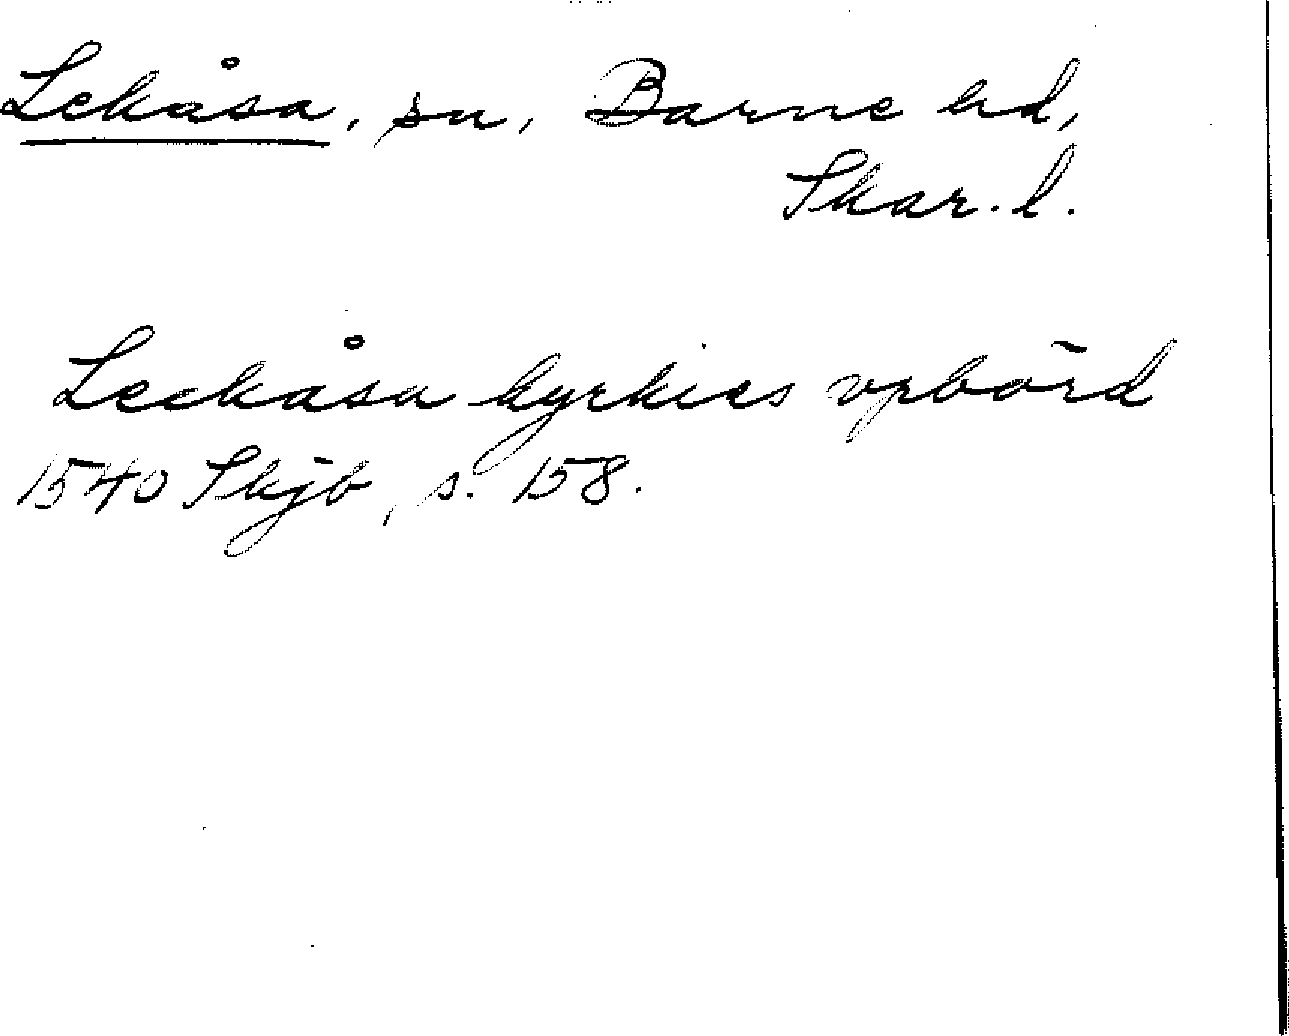 Lekåsa, sn, Barne hd,
Skar. l.
Leckåsa kyrkies vpbörd
1540 Skjb, s. 158.